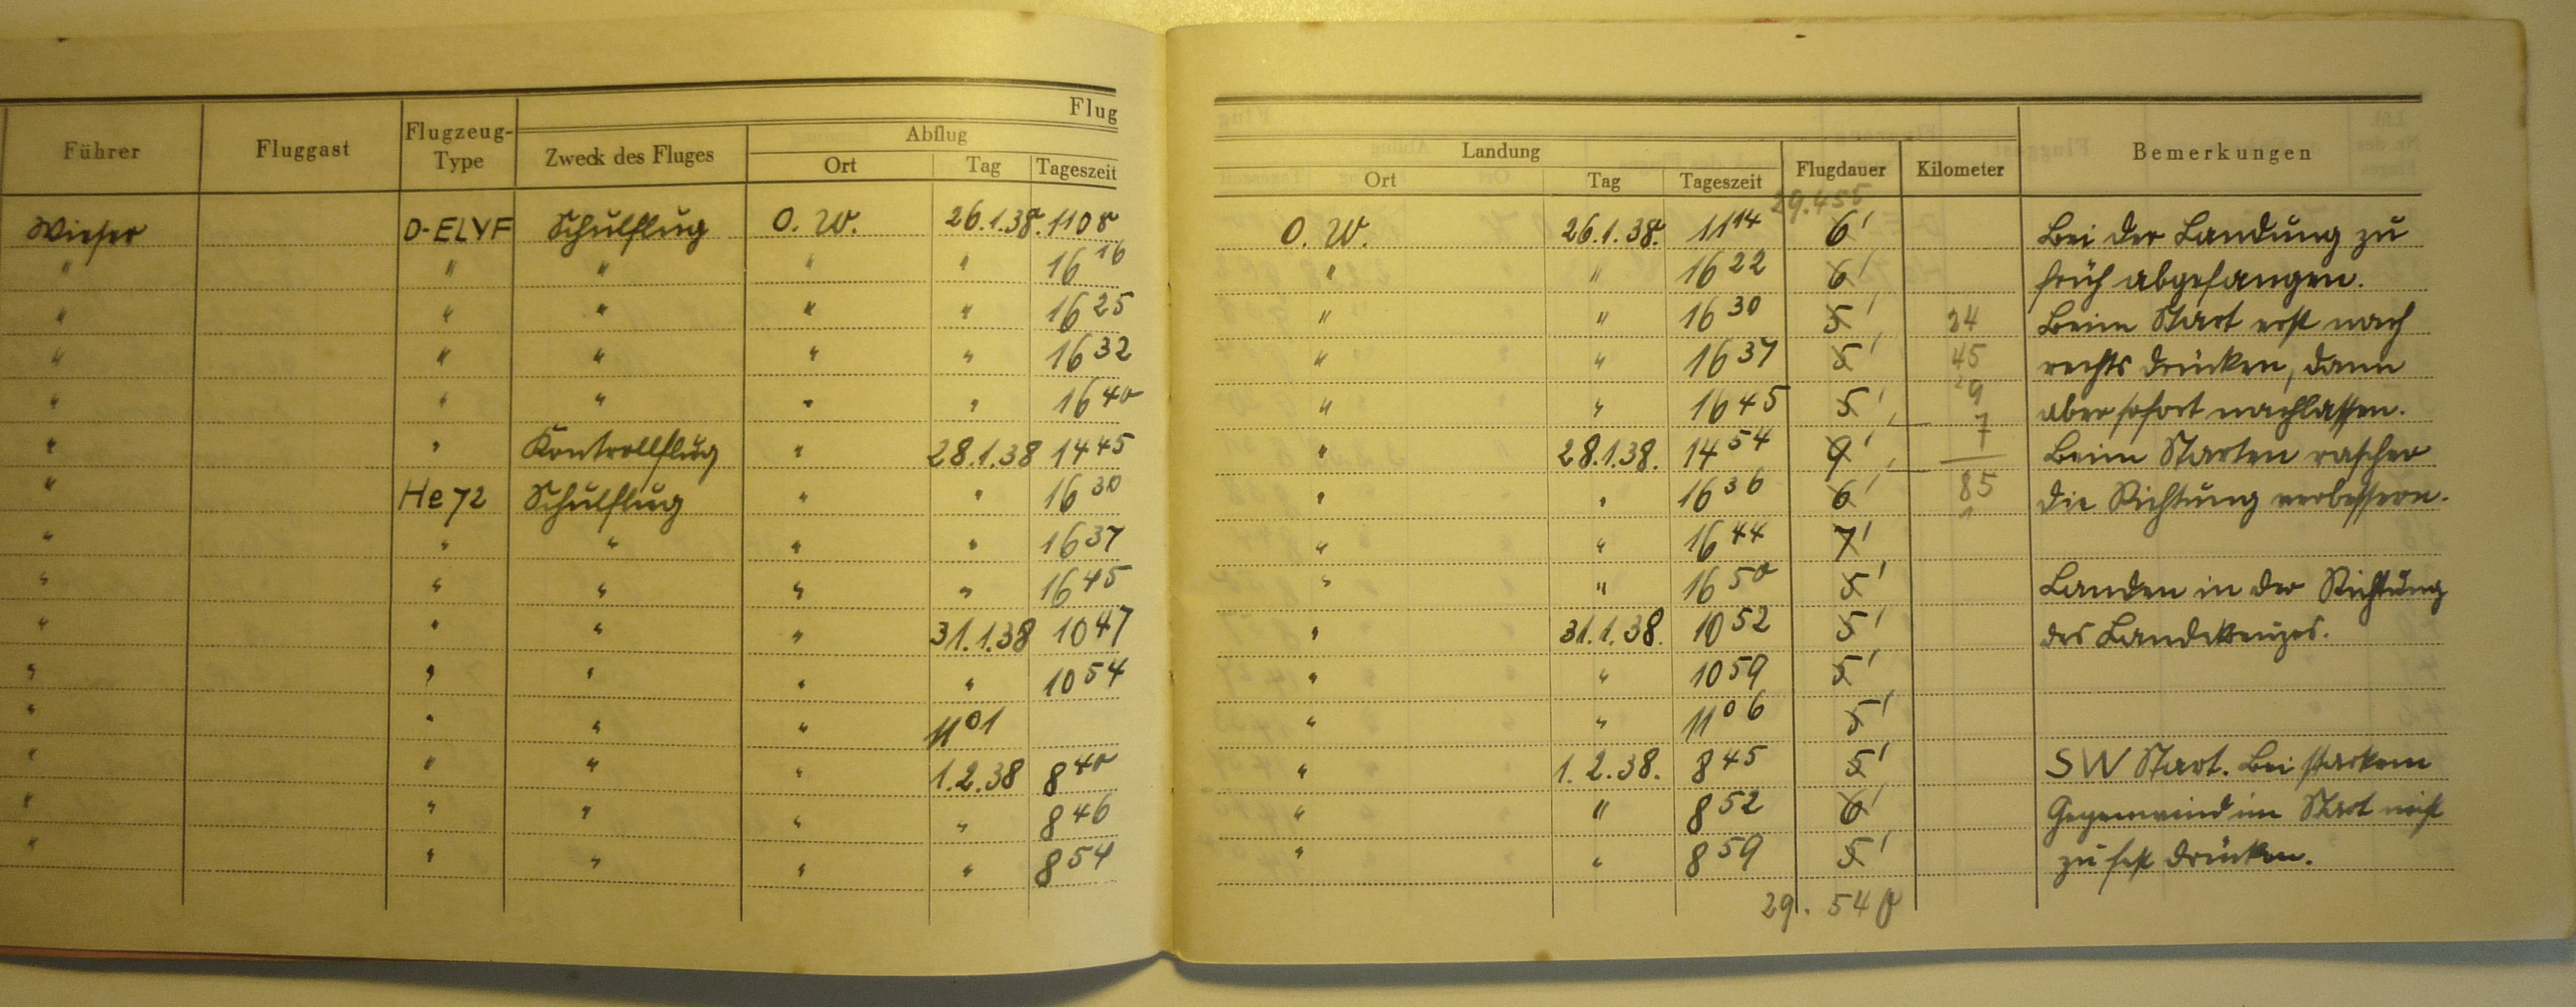 Flug
Führer Fluggast Flugzeug-Type Zweck des Fluges Abflug
Ort Tag Tageszeit
Landung Flugdauer Kilometer Bemerkungen
Ort Tag Tageszeit
29.455
Wieser D-ELYF Schulflug O.W. 26.1.38. 11 08 O.W. 26.1.38. 11 14 6' Bei der Landung zu
" " " " " 16 16 " " 16 22 6' früh abgefangen.
" " " " " 16 25 " " 16 30 5' 34 Beim Start erst nach
" " " " " 16 32 " " 16 37 5' 45 rechts drücken, dann
" " " " " 16 40 " " 16 45 5' 29 aber sofort nachlassen.
" " Kontrollflug " 28.1.38 14 45 " 28.1.38. 14 54 9' 7 Beim Starten rascher
" He 72 Schulflug " " 16 30 " " 16 36 6' 85 die Richtung verbessern.
" " " " " 16 37 " " 16 44 7'
" " " " " 16 45 " " 16 50 5' Landen in der Richtung
" " " " 31.1.38 10 47 " 31.1.38. 10 52 5' des Landekreuzes.
" " " " " 10 54 " " 10 59 5'
" " " " 11 01 " " 11 06 5'
" " " " 1.2.38 8 40 " 1.2.38. 8 45 5' SW Start. Bei starkem
" " " " " 8 46 " " 8 52 6' Gegenwind im Start nicht
" " " " " 8 54 " " 8 59 5' zu fest drücken.
29.540